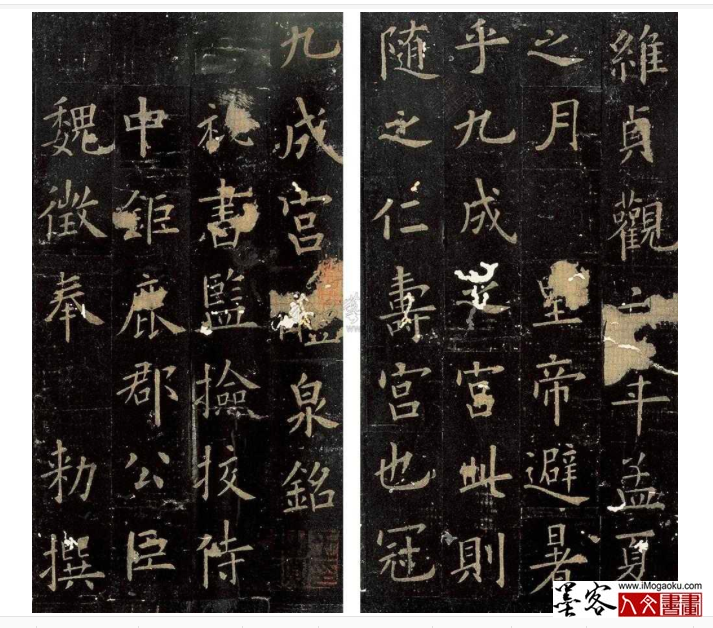 九成宫泉銘
祕書監撿挍侍
中鉅鹿郡公臣
魏徵奉勑撰
維貞觀年孟夏
之月皇帝避暑
乎九成之宫此則
随之仁壽宫也冠
墨客
www.iMogaoku.com
人文書畫